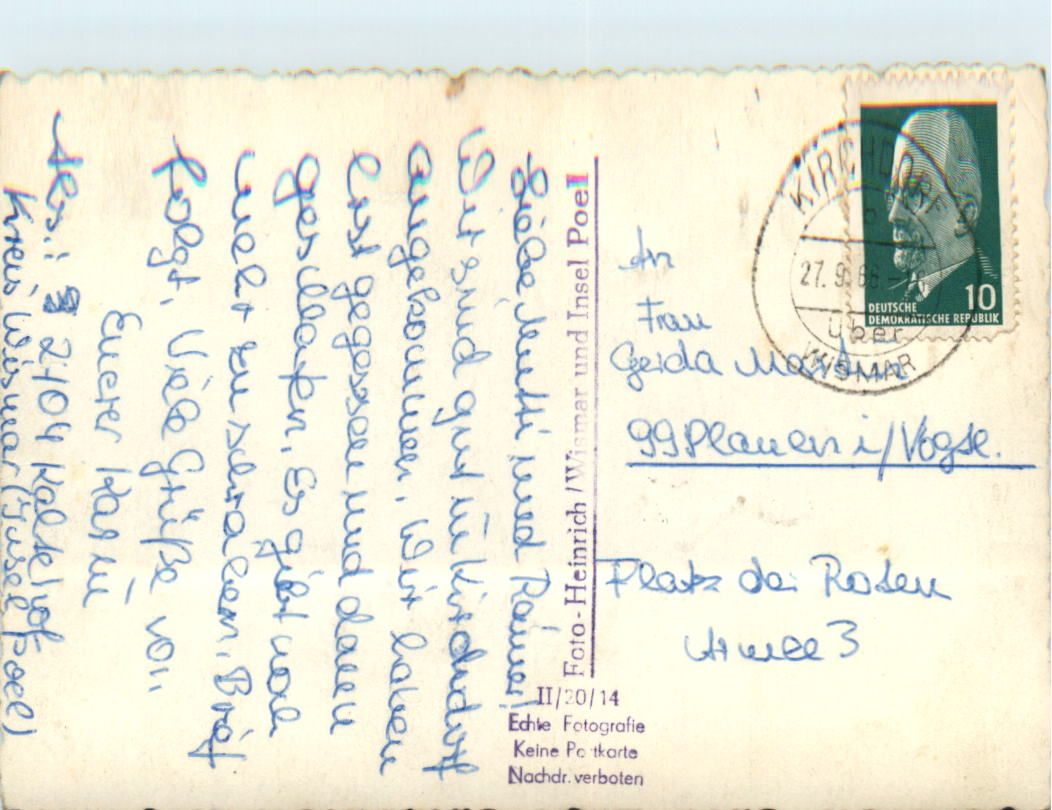 Liebe Mutti und Rainer!
Wir sind gut in Kirchdorf
angekommen. Wir haben
erst gegessen und dann
geschlafen. Es gibt noch
mehr zu schreiben. Brief
folgt. Viele Grüße von
Eurer Karin
Abs.: 2404 Kaltenhof
Kreis Wismar (Insel Poel)
Foto-Heinrich/Wismar und Insel Poel
II/20/14
Echte Fotografie
Keine Postkarte
Nachdr. verboten
KIRCHDORF
27.9.66
über
WISMAR
10
DEUTSCHE
DEMOKRATISCHE REPUBLIK
An
Frau
Gerda
99 Plauen i/Vogtl.
Platz der Roten
Armee 3